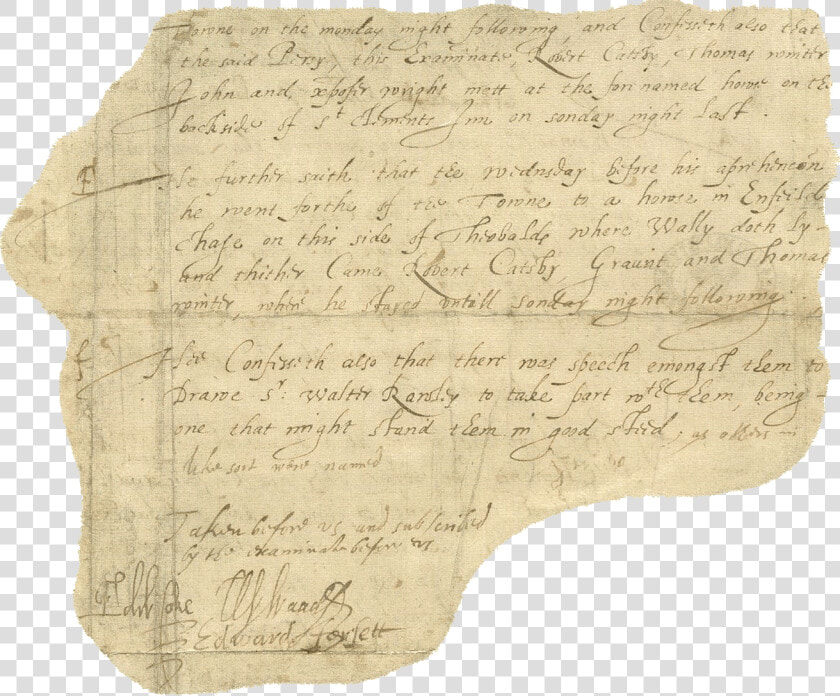 Towne on the monday night following, and Confesseth also that
the said Percy, this Examinate, Robert Catsby, Thomas winter
John and xpofer wright mett at the forenamed howse on the
backside of St Clements Inn on sonday night last.
F He further saith that the wednsday before his aprehencon
he went forthe of the Towne to a howse in Enfeild
Chase on this side of Theobalds where Wally doth ly
and thither Came Robert Catsby, Graunt and Thomas
winter, where he stayed untill sonday night following.
f Hee Confesseth also that there was speech emongst them to
Drawe Sr: Walter Rawley to take part wth them, being
one that might stand them in good steed, as others in
like sort were named
Taken before us and subscribed
by the examinate before us
Edw: Coke W Waad
Edward Forsett